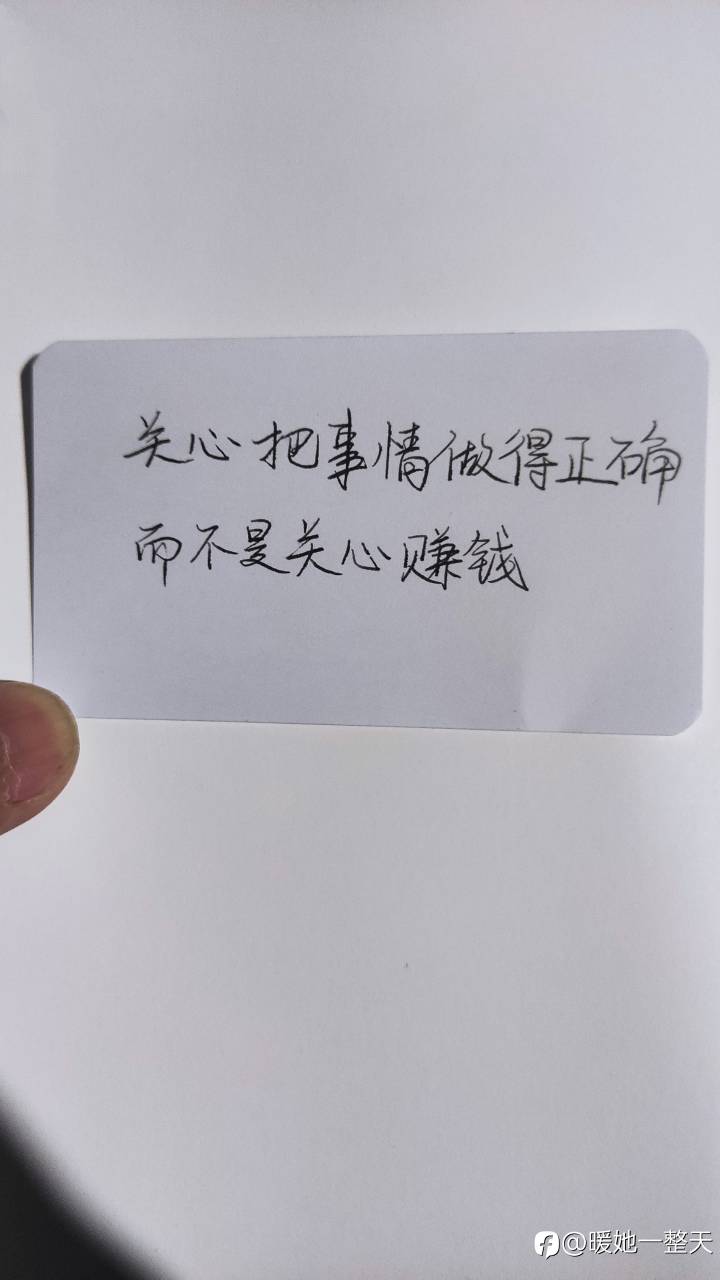 关心把事情做得正确
而不是关心赚钱
@暖她一整天